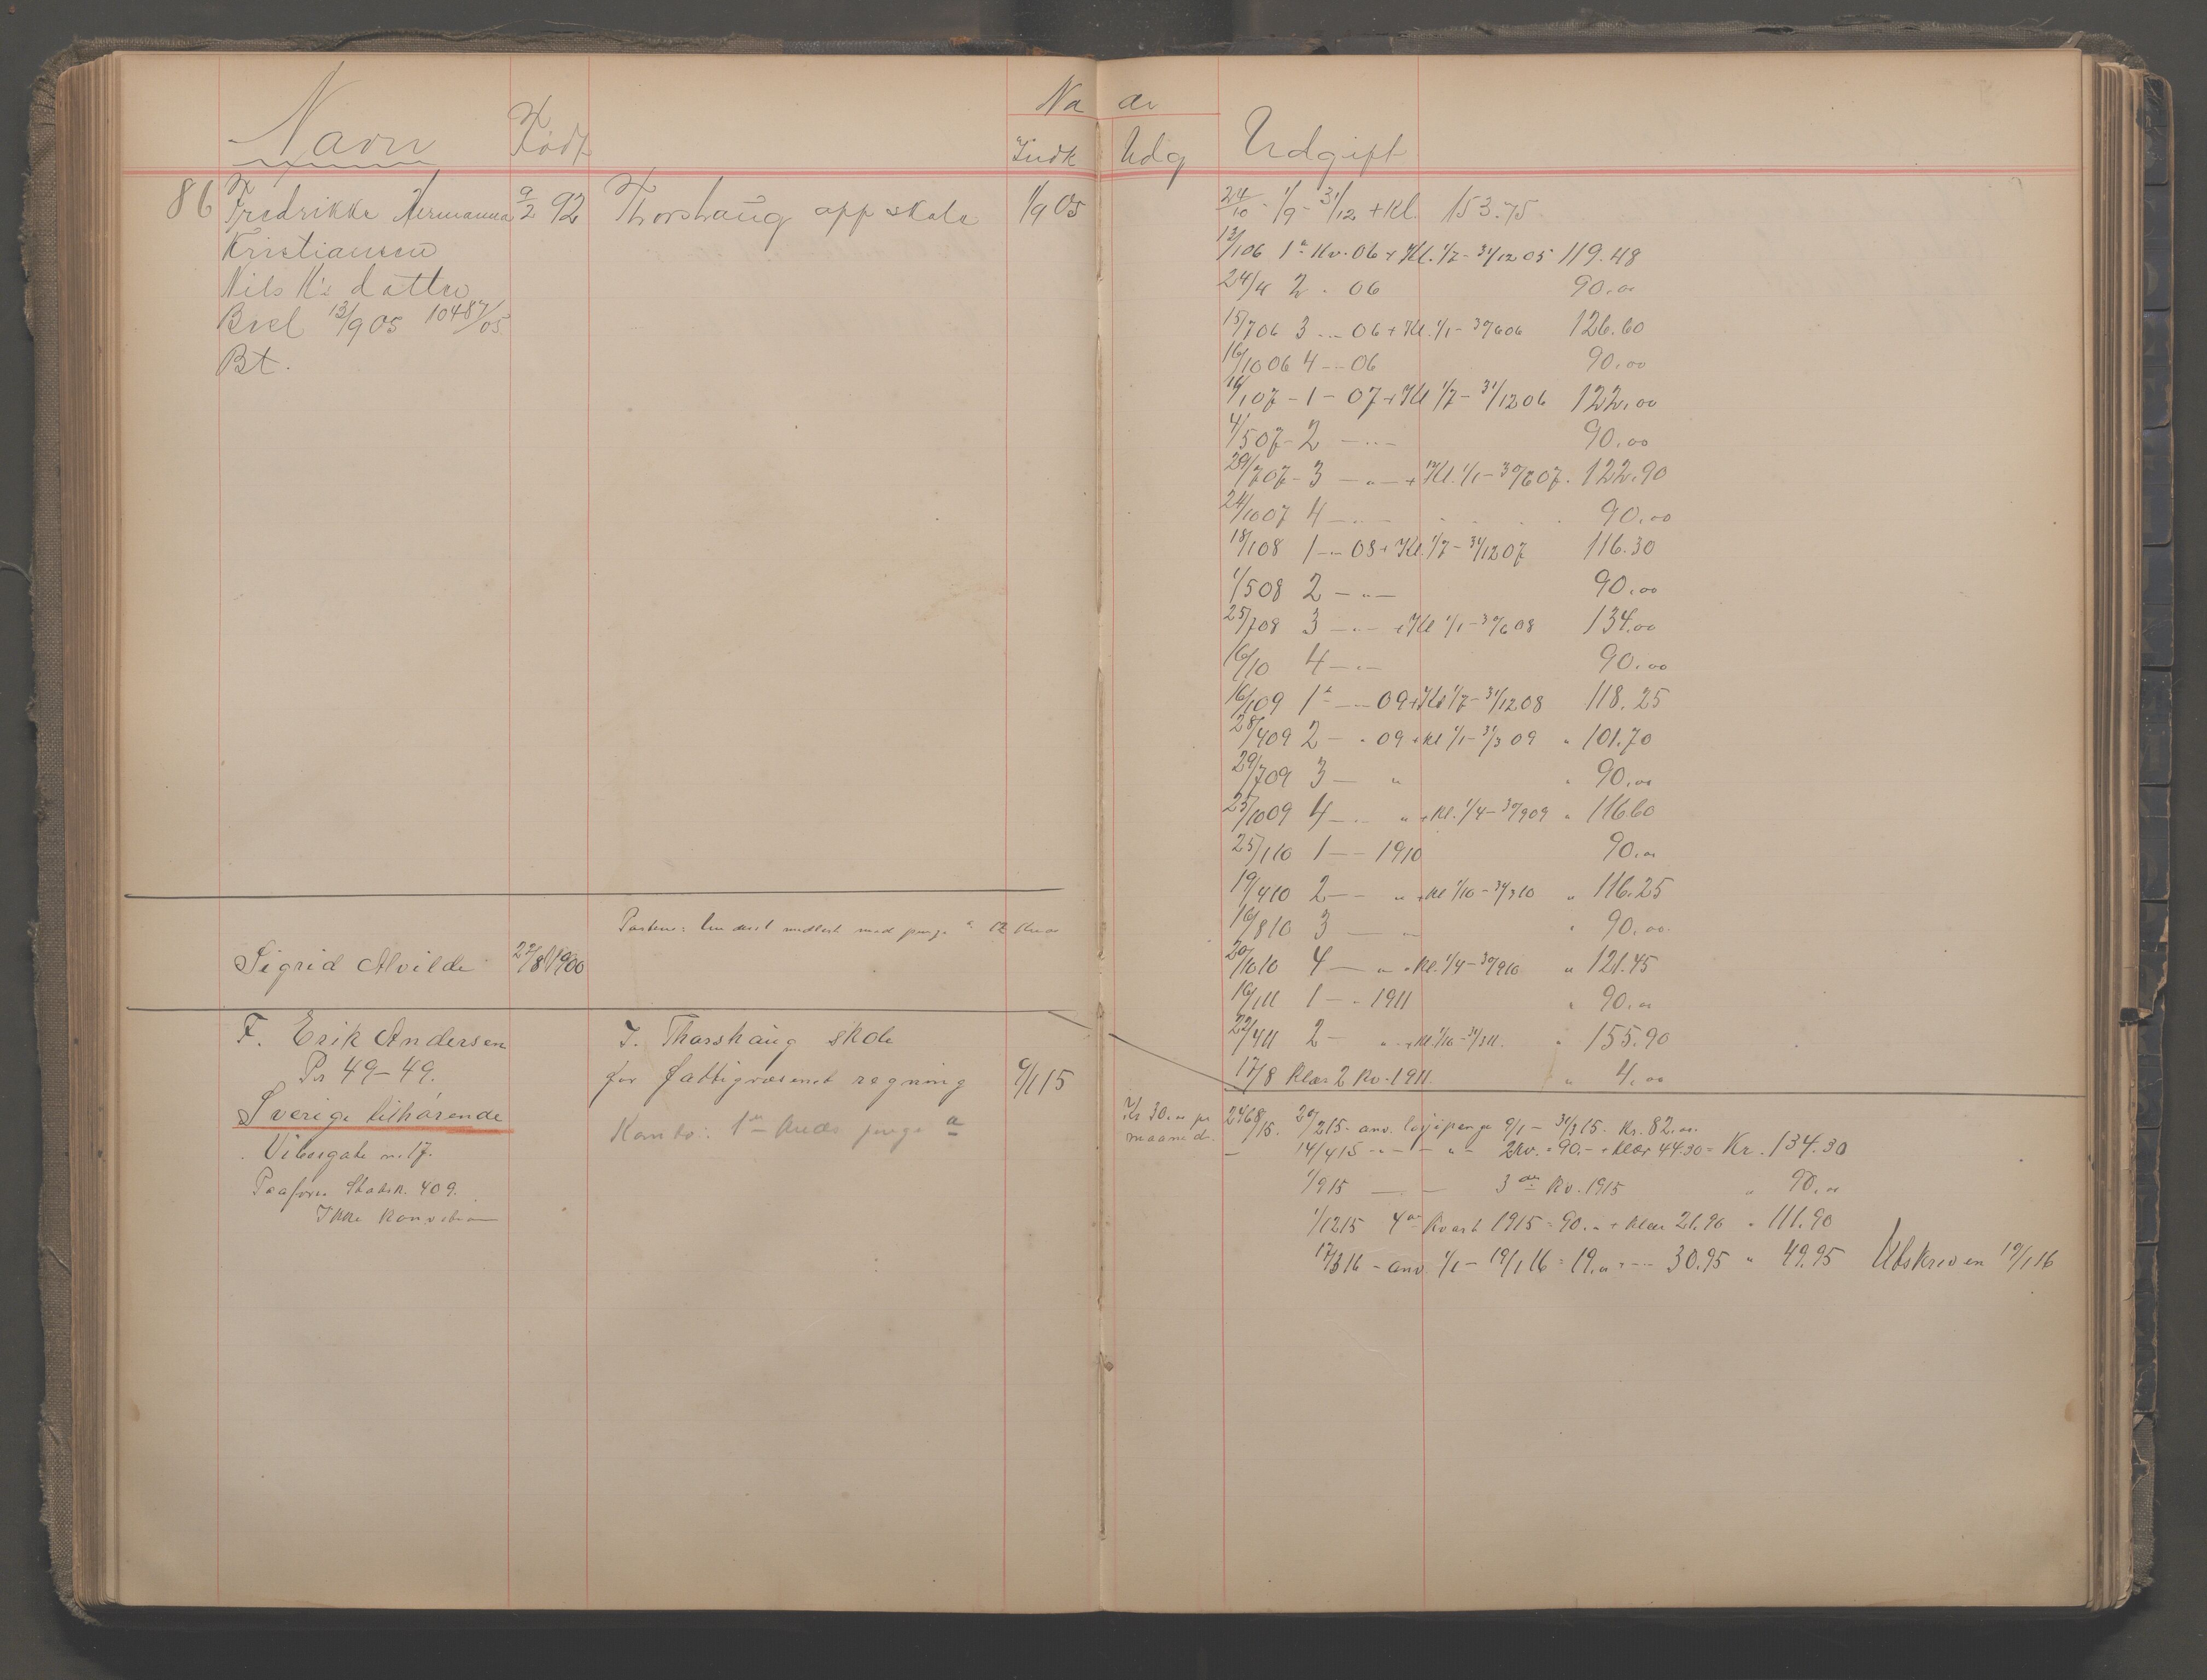 Navn Født Naar Indk Udg Udgift
86 Fredrikke Hermanna 9/2 92 Thorshaug opp skole 1/9 05
Kristiansen
Nils K's datter
Besl 13/9 05 10487/05.
Bt.
Sigrid Alvilde 22/8 1900
F. Erik Andersen
Pr 49-49.
Sverige tilhørende
Vibesgate n. 17.
Ikke
T. Thorshaug skole
for fattigvæsenet regning 9/1 15
24/10 - 1/9 - 31/12 + Kl. 153.75
13/1 06 1ste Kv. 06 + Kl. 1/7 - 31/12 05 119.48
24/4 2 . 06 90.00
15/7 06 3 .. 06 + Kl. 1/1 - 30/6 06 126.60
16/10 06 4 - .. 06 90.00
14/1 07 - 1 - 07 + Kl 1/7 - 31/12 06 122.00
4/5 07 - 2 - .. - 90.00
29/7 07 - 3 - " - + Kl. 1/1 - 30/6 07. 122.90
24/10 07 4 - .. - 90.00
18/1 08 1 - .. 08 + Kl. 1/7 - 31/12 07 116.30
1/5 08 2 - " - 90.00
25/7 08 3 - .. - + Kl 1/1 - 30/6 08 134.00
16/10 4 - .. - 90.00
16/1 09 1ste - .. 09 + Kl 1/7 - 31/12 08 118.25
28/4 09 2 - " 09 + Kl 1/1 - 31/3 09 " 101.70
29/7 09 3 - " " 90.00
25/10 09 4 - .. " + Kl. 1/4 - 30/9 09 " 116.60
25/1 10 1 - - 1910 90.00
19/4 10 2 - - " + Kl 1/10 - 31/3 10 " 116.25
16/8 10 3 - .. " 90.00
20/10 10 4 - " + Kl. 1/4 - 30/9 10 " 121.45
16/1 11 1 - " 1911 " 90.00
22/4 11 2 - " + Kl. 1/10 - 31/3 11. " 155.90
17/8 Klær 2 Kv. 1911. " 4.00
Kr 30.00 pr maaned. 2468/15. 20/2 15 - anv. 9/1 - 31/3 15. Kr. 82.00
14/4 15 - " - - " - 2 kv. = 90.- + klær 44.30 = Kr. 134.30
1/9 15 - - 3die Kv. 1915 " 90.00
1/12 15 4de Kvart 1915 = 90.00 + klær 21.90 " 111.90
17/3 16 - anv. 1/1 - 19/1 16 = 19.00 + - .. 30.95 " 49.95 Utskreven 19/1 16